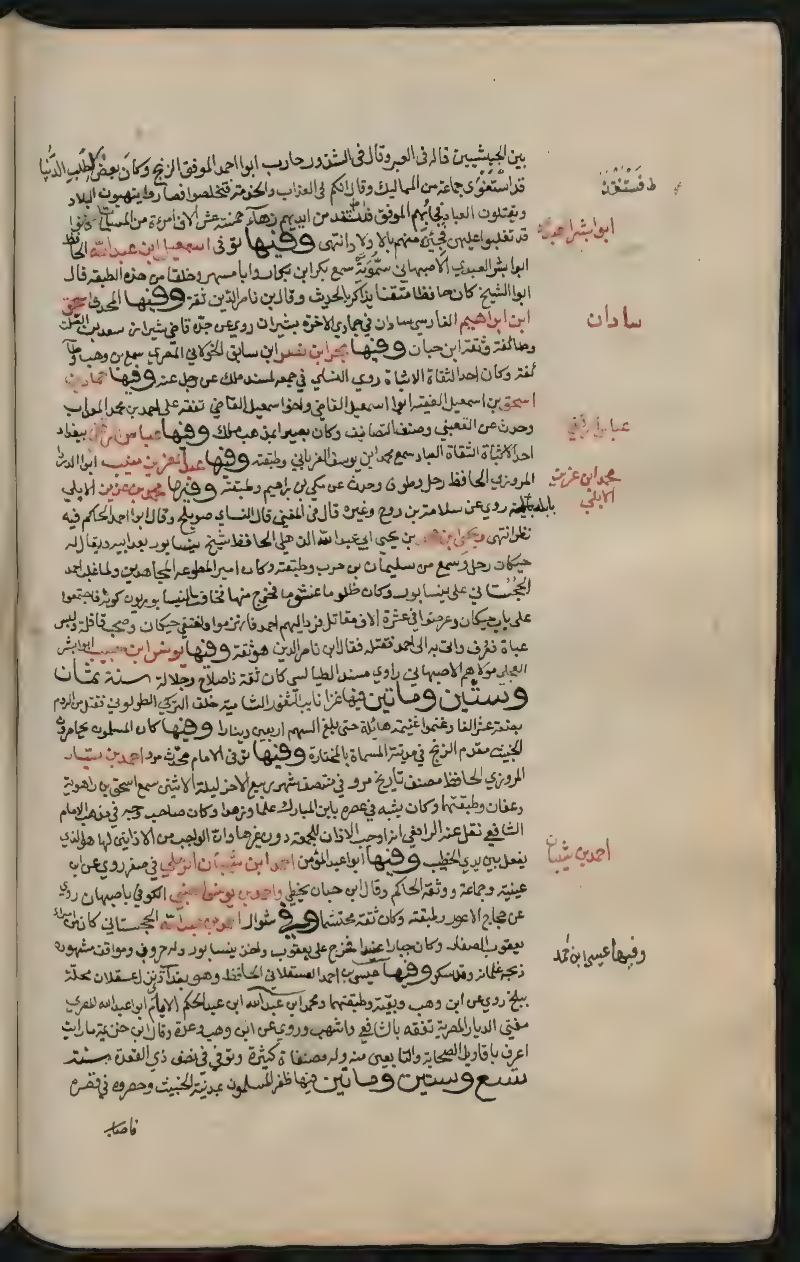 بين الجيشيين قاله في العبر وقال في الشذور حارب ابوا احمد الموفق الزنج وكان بعض لطلب الدنيا
قد استغوى جماعة من المماليك وقال انكم في العذاب والخدمة فتخلصوا فصاروا ينهبون البلاد
ويقتلون العباد فجاءهم الموفق فاستنقذ من ايديهم زهاء خمسة عشر الاف امرءة من المسلمات كانوا
قد تغلبوا عليهن فجئن منهم بالاولاد انتهى وفيها توفى اسمعيل ابن عبد الله الحافظ
ابوا بشر العبدي الاصبهاني سمويه سمع بكر ابن بكار وابا مسهر وخلقا من هذه الطبقة قال
ابوا الشيخ كان حافظا متقنا يذاكر بالحديث وقال ابن ناصر الدين ثقة وفيها المحدث اسحق
ابن ابراهيم الفارسي سادان في جمادي الاخرة بشيراز روى عن جده قاضي شيراز سعد بن الصلت
وطائفة وثقه ابن حبان وفيها بحر ابن نصر ابن سابق الخولاني المصري سمع من وهب وطا
ئفة وكان احد الثقاة الاثباة روى النسائي في جمعه لمسند ملك عن رجل عنه وفيها حماد بن
اسحق بن اسمعيل الفقيه ابوا اسمعيل القاضي واخوا اسمعيل القاضي تفقه على احمد بن محمد المعذل
وحدث عن القعنبي وصنف التصانيف وكان بصيرا بمذهب ملك وفيها عباس الترقفي ببغداد
احد الاثباة الثقاة العباد سمع محمد ابن يوسف الفريابي وطبقته وفيها عبد العزيز بن منيب ابوا الدرداء
المروزي الحافظ رحل وطوف وحدث عن مكي بن ابراهيم وطبقته وفيها محمد بن عزيز الايلي
بايلة روى عن سلامة بن روح وغيره قال في المغني قال النساي صويلح وقال ابوا احمد الحاكم فيه
نظر انتهى ويحيى ابن محمد بن يحيى ابي عبد الله الذهلي الحافظ شيخ نيسابور بعد ابيه ويقال له
حيكان رحل وسمع من سليمان بن حرب وطبقته وكان امير المطوعة المجاهدين ولما غلب احمد
الخجستاني على نيسابور وكان ظلوما غشوما فخرج منها فخاف النيسابوريون كرته فاجتمعوا
على باب حيكان وعرضوا في عشرة الاف مقاتل فرد اليهم احمد فانهزموا واختفى حيكان وصحب قافلة ولبس
عباة فعرف واتي به الى احمد فقتله فقال ابن ناصر الدين هو ثقة وفيها يونس ابن حبيب ابوا بشر
العجلي مولاهم الاصبهاني راوي مسند الطيالسي كان ثقة ذا صلاح وجلالة سنة ثمان
وستين وماتين فيها غزا نايب الثغور الشامية خلف التركي الطولوني فقتل من الروم
بضعة عشر الفا وغنموا غنيمة هائلة حتى بلغ السهم اربعين دينارا وفيها كان المسلمون يحاصرون
الخبيث مقدم الزنج في مدينته المسماة بالمختارة وفيها توفى الامام محدث مرو احمد بن سيار
المروزي الحافظ مصنف تاريخ مرو في منتصف شهر ربيع الاخر ليلة الاثنين سمع اسحق بن راهويه
وعفان وطبقتهما وكان يشبه في عصره بابن المبارك علما وزهدا وكان صاحب وجه في مذهب الامام
الشافعي نقل عنه الرافعي انه اوجب الاذان للجمعة دون غيرها وان الواجب من الاذانين لها هو الذي
يفعل بين يدي الخطيب وفيها ابوا عبد المؤمن احمد ابن شيبان الرملي في صفر روى عن ابن
عيينة وجماعة ووثقه الحاكم وقال ابن حبان يخطي واحمد بن يونس الضبي الكوفي باصبهان روى
عن حجاج الاعور وطبقته وكان ثقة محتشما وفي شوال احمد بن عبد الله الخجستاني كان من امراء
يعقوب الصفار وكان جبارا عنيدا فخرج على يعقوب واخذ نيسابور وله حروف ومواقف مشهورة
ذبحه غلمانه وقد سكر وفيها عيسى بن احمد العسقلاني الحافظ وهو بغدادي نزل عسقلان محلة
ببلخ روى عن ابن وهب وبقية وطبقتهما ومحمد ابن عبد الله ابن عبد الحكم الامام ابوا عبد الله المصري
مفتي الديار المصرية تفقه بالشافعي واشهب وروى عن ابن وهب وعدة وقال ابن خزيمة ما رايت
اعرف باقاويل الصحابة والتابعين منه وله مصنفاة كثيرة وتوفي في نصف ذي القعدة سنة
تسع وستين وماتين فيها ظفر المسلمون بمدينة الخبيث وحصروه في قصره
فاصاب
ابوا بشر العبدي
سادان
عباس الترقفي
محمد ابن عزيز
الايلي
احمد بن شيبان
وفيها عيسى ابن احمد